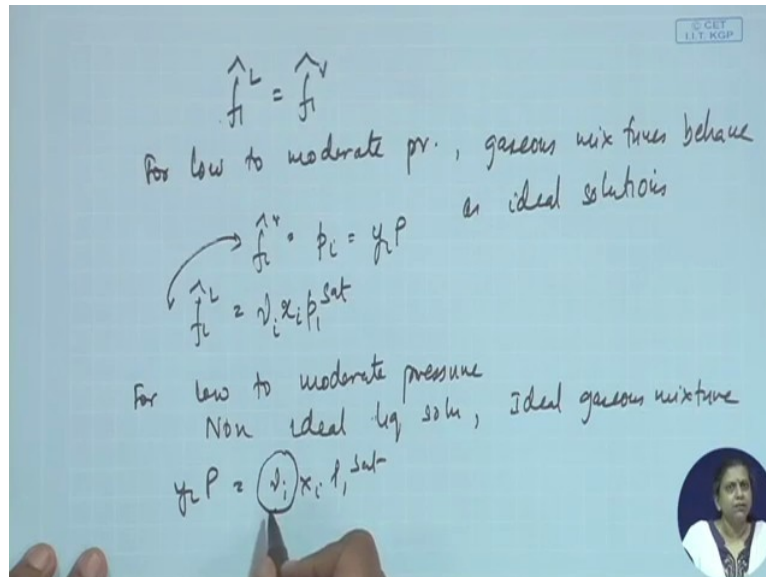 © CET
I.I.T. KGP
f̂₁ᴸ = f̂₁ⱽ
For low to moderate pr., gaseous mixtures behave
as ideal solutions
f̂ᵢⱽ = pᵢ = yᵢP
f̂ᵢᴸ = γᵢ xᵢ pᵢˢᵃᵗ
For low to moderate pressure
Non ideal liq soln, Ideal gaseous mixture
yᵢ P = γᵢ xᵢ Pᵢˢᵃᵗ